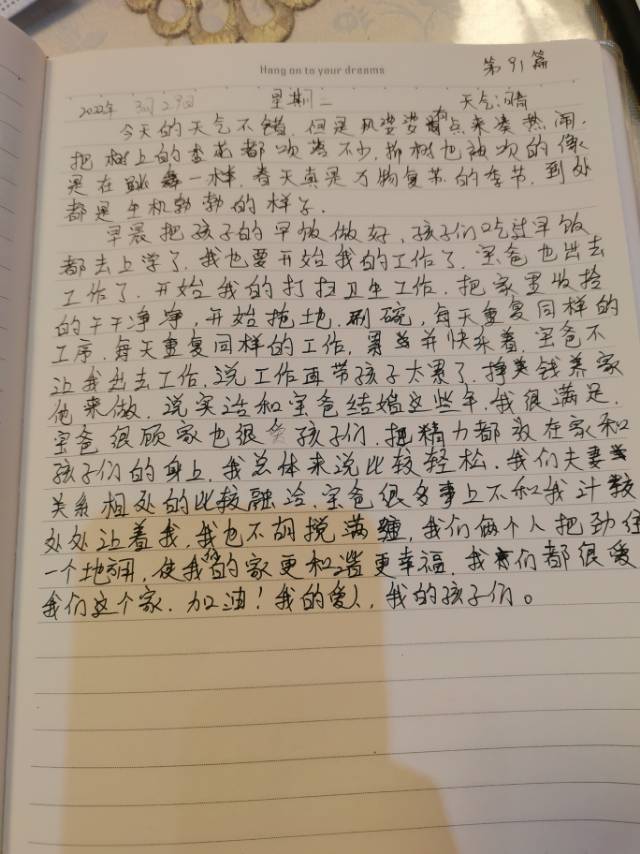 Hang on to your dreams
第91篇
2022年 3月29日 星期二 天气:晴
今天的天气不错,但是风婆婆有点来凑热闹.
把树上的杏花都吹落不少,柳树也被吹的像
是在跳舞一样,春天真是万物复苏的季节,到处
都是生机勃勃的样子.
早晨把孩子的早饭做好,孩子们吃过早饭
都去上学了,我也要开始我的工作了,宝爸也出去
工作了.开始我的打扫卫生工作.把家里收拾
的干干净净,开始拖地.刷碗,每天重复同样的
工序.每天重复同样的工作,累并快乐着,宝爸不
让我出去工作,说工作再带孩子太累了,挣钱养家
他来做.说实话和宝爸结婚这些年,我很满足.
宝爸很顾家也很爱孩子们.把精力都放在家和
孩子们的身上,我总体来说比较轻松.我们夫妻
关系相处的比较融洽.宝爸很多事上不和我计较
处处让着我,我也不胡搅蛮缠,我们俩个人把劲往
一个地方用,使我们的家更和谐更幸福.我们都很爱
我们这个家.加油!我的爱人,我的孩子们。